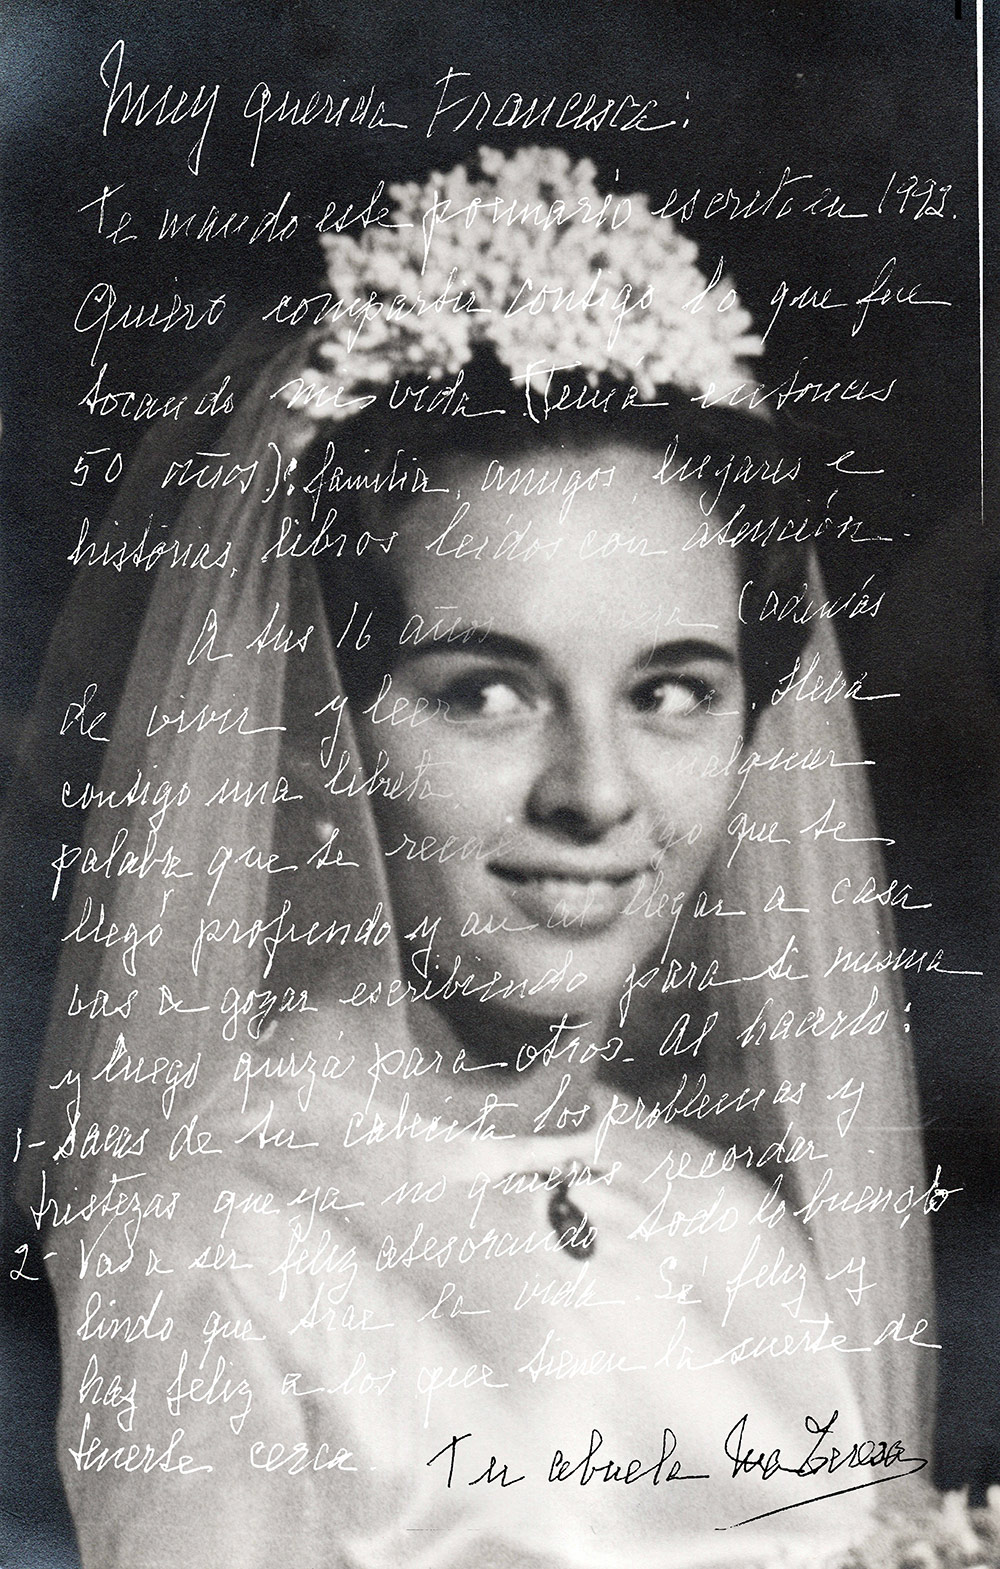 Muy querida Francesca:
te mando este poemario escrito en 1992.
Quiero compartir contigo lo que fue
tocando mi vida (Tenía entonces
50 años): familia, amigos, lugares e
historias, libros leídos con atención.
A tus 16 años (además
de vivir y leer . Lleva
contigo una libreta
palabra que te que te
llegó profundo y así al llegar a casa
vas a gozar escribiendo para ti misma
y luego quizá para otros. Al hacerlo:
1- Sacas de tu cabecita los problemas y
tristezas que ya no quieras recordar
2- Vas a ser feliz atesorando todo lo bueno, lo
lindo que trae la vida. Sé feliz y
haz feliz a los que tienen la suerte de
tenerte cerca
Tu abuela Ma Teresa